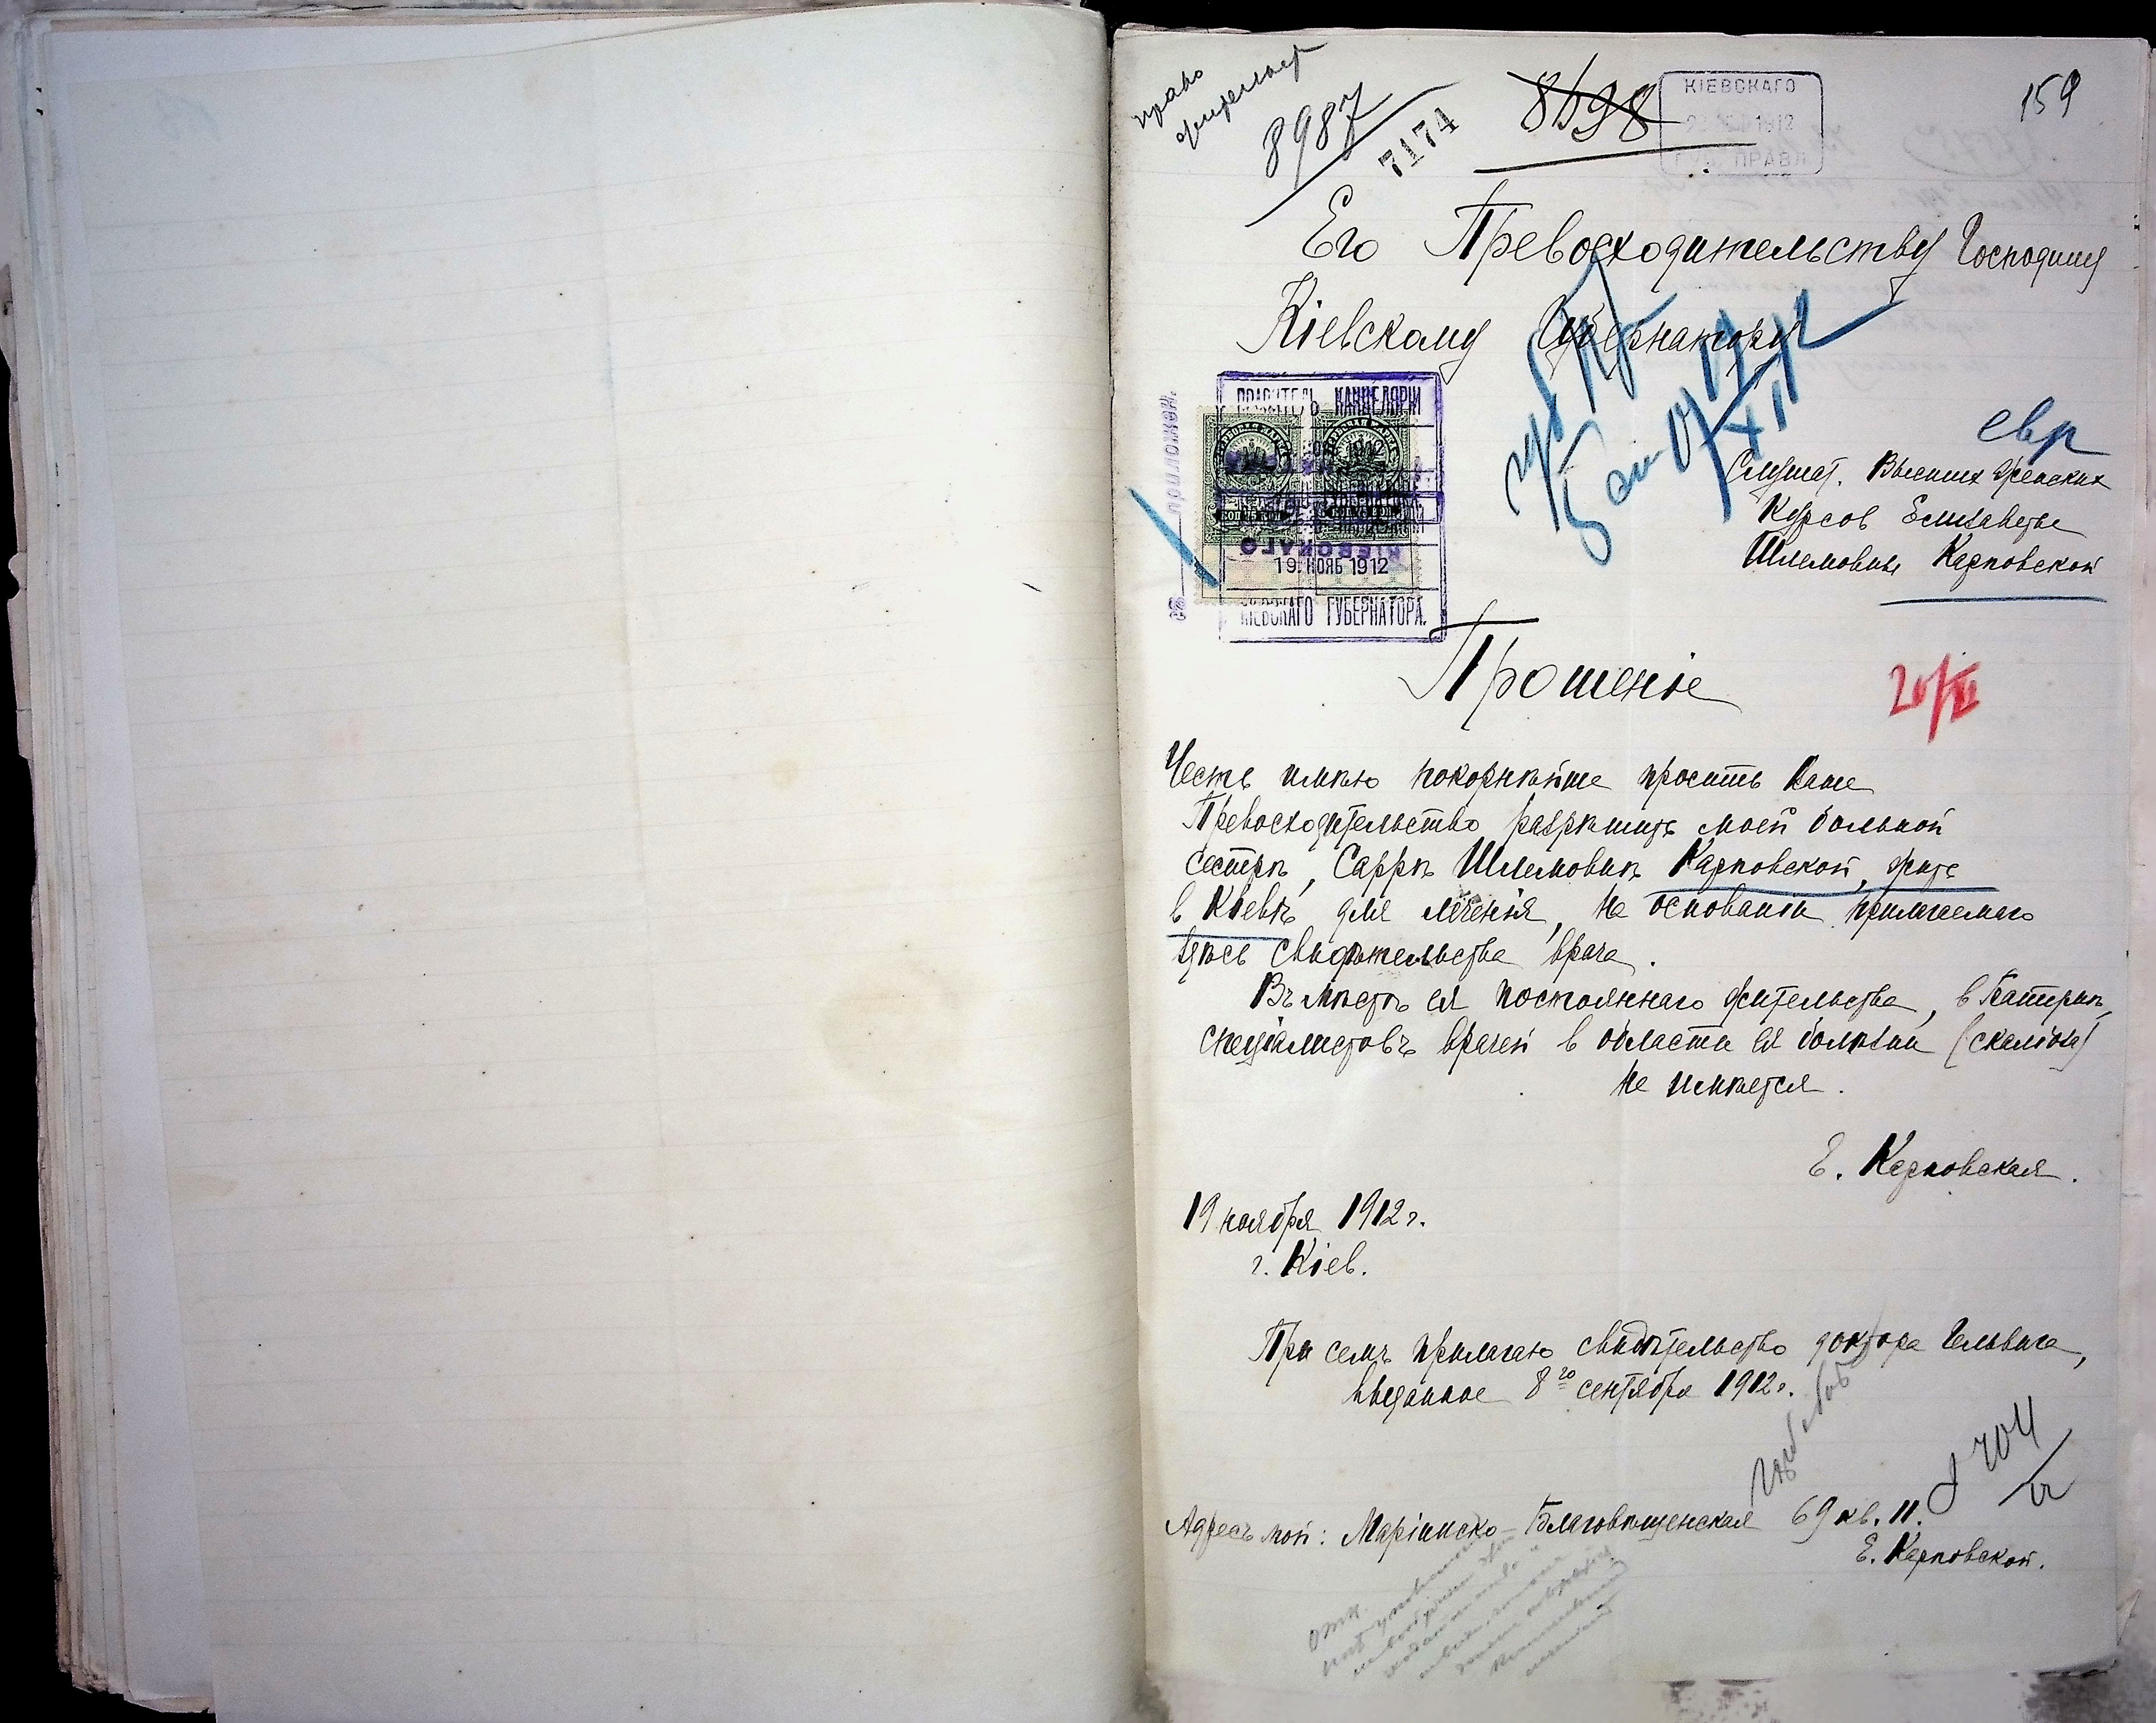 право
жительст
8987
7174
8698
КІЕВСКАГО
1912
ГУБ. ПРАВЛ
159
Его Превосходительству Господину
Кіевскому Губернатору
ПРАВИТЕЛЬ КАНЦЕЛЯРІИ
19 НОЯБ 1912
КІЕВСКАГО ГУБЕРНАТОРА.
евр
Слушат. Высших Женских
Курсов Елизаветы
Шлемовны Карповской
Прошеніе
20/XI
Честь имѣю покорнѣйше просить Ваше
Превосходительство разрѣшить моей больной
сестрѣ, Саррѣ Шлемовнѣ Карповской, жить
в Кіевѣ для леченія, на основаніи прилагаемаго
здѣсь свидѣтельства врача.
Въ мѣстѣ ея постояннаго жительства, в
спеціалистовъ врачей в области ея болѣзни (скаліоза)
не имѣется.
Е. Карповская.
19 ноября 1912 г.
г. Кіев.
При семъ прилагаю свидѣтельство доктора Гельвига,
выданное 8го сентября 1912 г.
Адресъ мой: Маріинско-Благовѣщенская 69 кв. 11.
Е. Карповской.